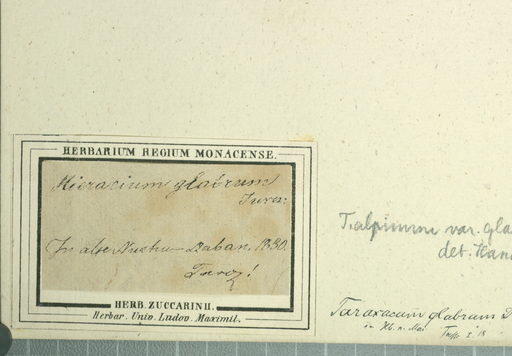 HERBARIUM REGIUM MONACENSE.
Hieracium glabrum
In alpe Nuchu-Daban. 1830.
Turcz!
HERB. ZUCCARINII.
Herbar. Univ. Ludov. Maximil.
T. alpinum var. gla
det. Han
Taraxacum glabrum D